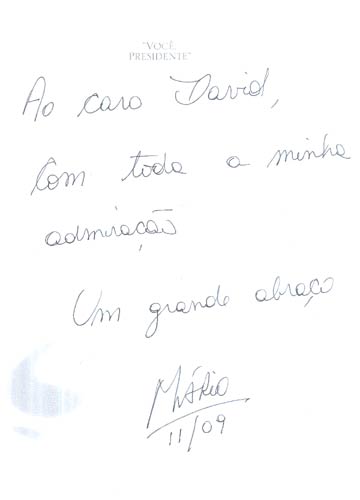 "VOCÊ,
PRESIDENTE"
Ao caro David,
Com toda a minha
admiração
Um grande abraço
Mário
11/09